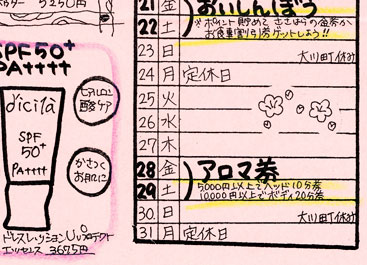 5250円
SPF50+
PA++++
dicila
SPF
50+
PA++++
ヒアルロン
酸ケア
かさつく
お肌に
ドレスレッションUVプロテクト
エッセンス 3675円
21 金 おいしんぼう
22 土 ※ポイント貯めと ささはらの金券か
お食事割引券ゲットしよう!!
23 日 大川町休み
24 月 定休日
25 火
26 水
27 木
28 金 アロマ券
29 土 5000円以上でヘッド10分券
10,000円以上でボディ20分券
30 日 大川町休み
31 月 定休日